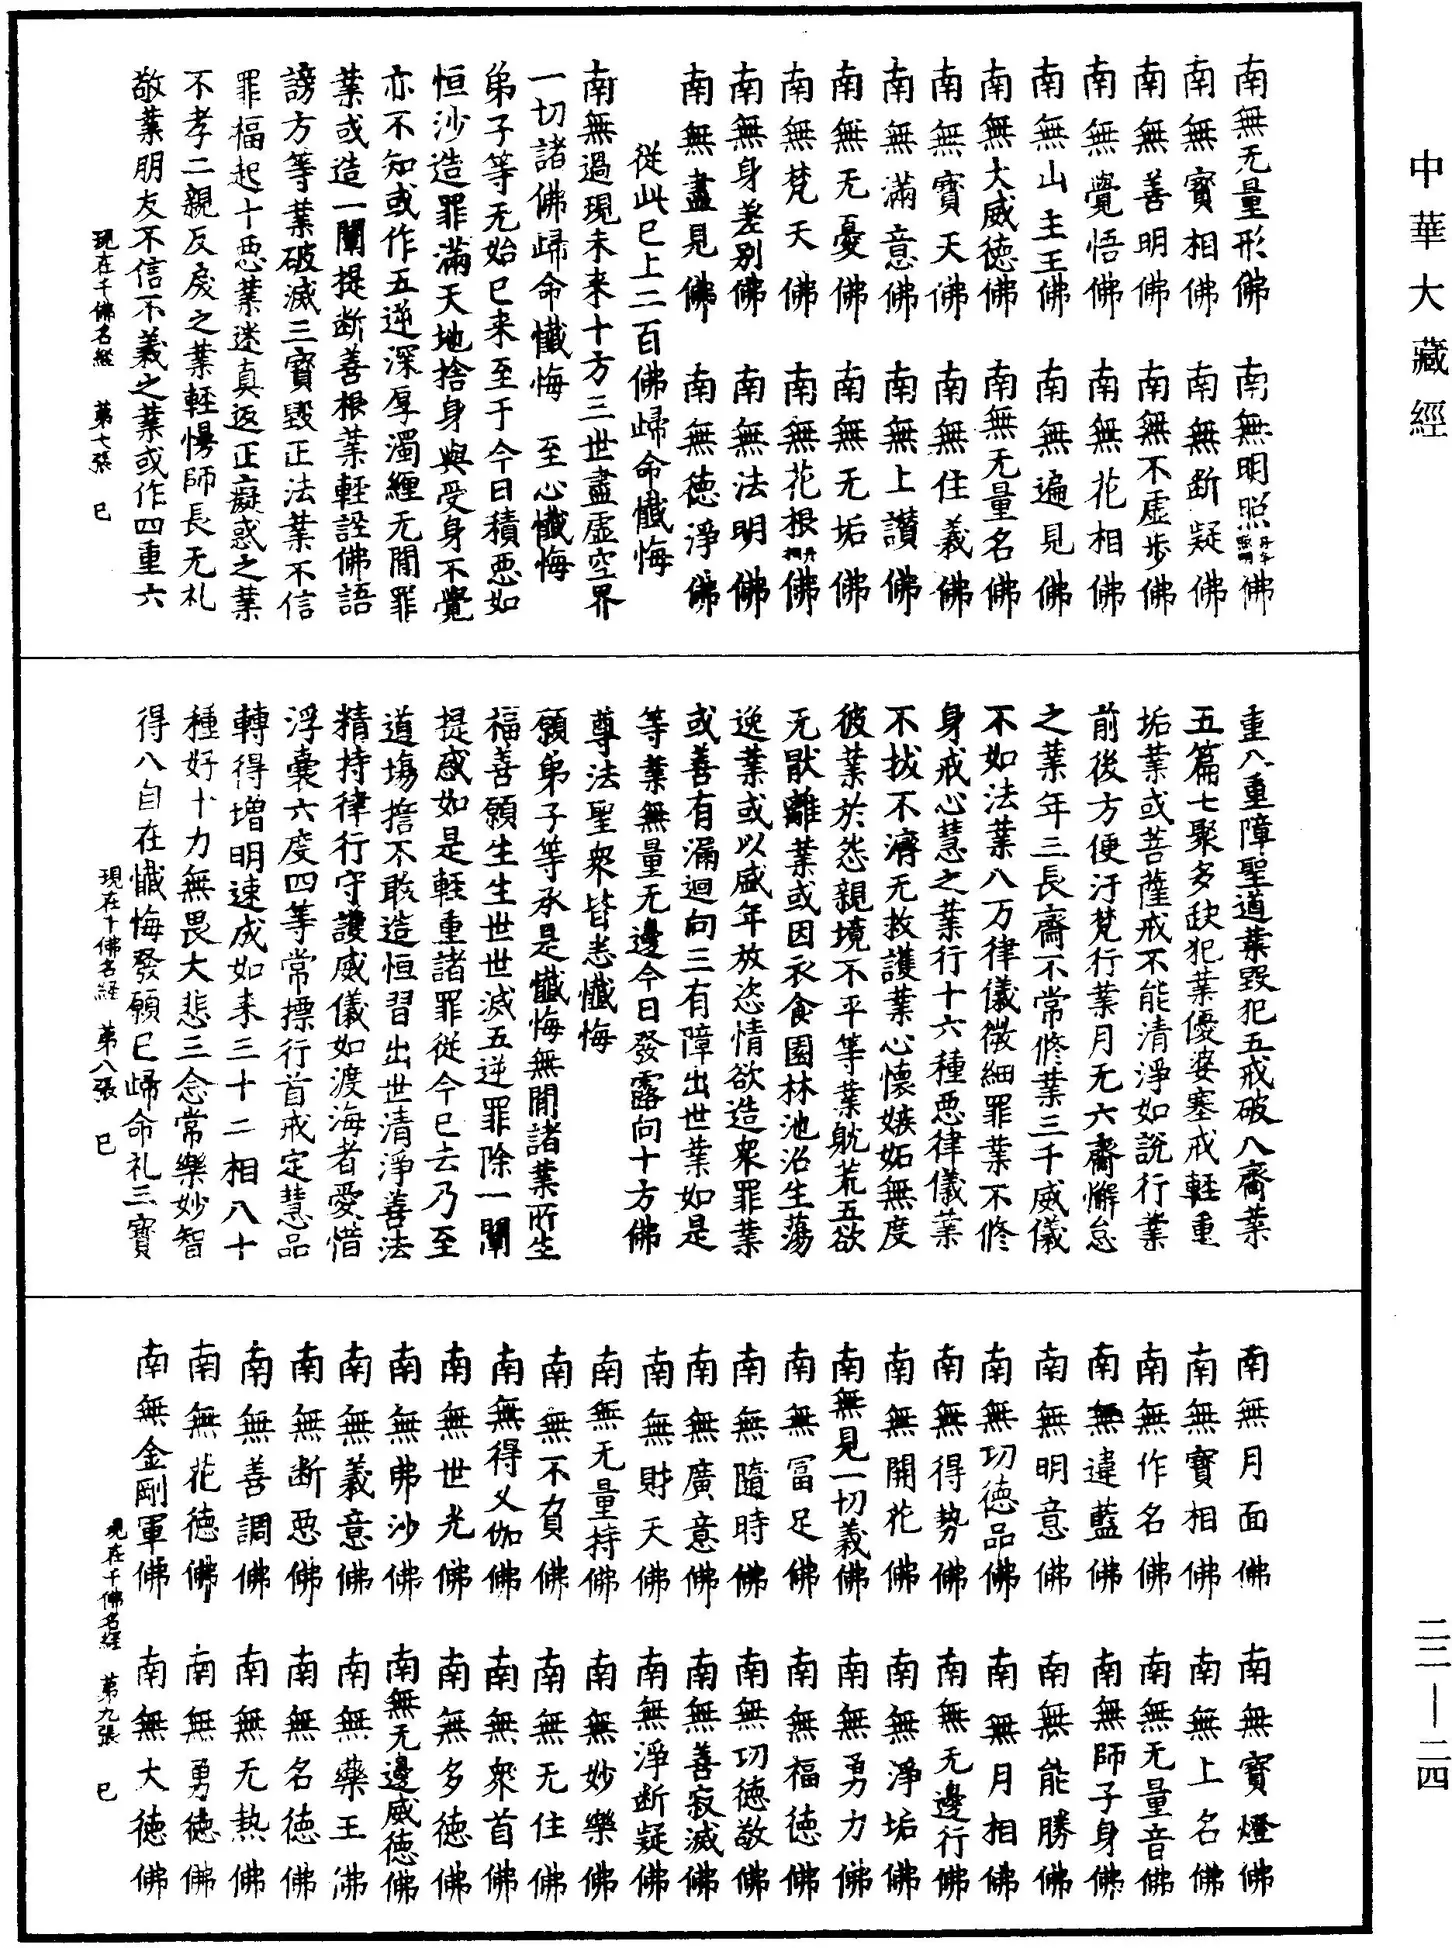 中華大藏經
南無无量形佛　南無明照佛
南無寶相佛　南無斷疑佛
南無善明佛　南無不虛步佛
南無覺悟佛　南無花相佛
南無山主王佛　南無遍見佛
南無大威德佛　南無无量名佛
南無寶天佛　南無住義佛
南無滿意佛　南無上讚佛
南無无憂佛　南無无垢佛
南無梵天佛　南無花根佛
南無身差別佛　南無法明佛
南無盡見佛　南無德淨佛
從此已上二百佛歸命懺悔
南無過現未来十方三世盡虛空界
一切諸佛歸命懺悔　至心懺悔
弟子等无始已来至于今日積惡如
恒沙造罪滿天地捨身與受身不覺
亦不知或作五逆深厚濁纏无間罪
業或造一闡提斷善根業輕誣佛語
謗方等業破滅三寶毀正法業不信
罪福起十惡業迷真返正癡惑之業
不孝二親反戾之業輕慢師長无礼
敬業朋友不信不義之業或作四重六
現在千佛名經　第七張　巳
重八重障聖道業毀犯五戒破八齋業
五篇七聚多缺犯業優婆塞戒輕重
垢業或菩薩戒不能清淨如說行業
前後方便汙梵行業月无六齋懈怠
之業年三長齋不常修業三千威儀
不如法業八万律儀微細罪業不修
身戒心慧之業行十六種惡律儀業
不拔不濟无救護業心懷嫉妬無度
彼業於怨親境不平等業躭荒五欲
无猒離業或因衣食園林池沼生蕩
逸業或以盛年放恣情欲造衆罪業
或善有漏迴向三有障出世業如是
等業無量无邊今日發露向十方佛
尊法聖衆皆悉懺悔
願弟子等承是懺悔無間諸業所生
福善願生生世世滅五逆罪除一闡
提惑如是輕重諸罪從今已去乃至
道場誓不敢造恒習出世清淨善法
精持律行守護威儀如渡海者愛惜
浮囊六度四等常摽行首戒定慧品
轉得增明速成如来三十二相八十
種好十力無畏大悲三念常樂妙智
得八自在懺悔發願已歸命礼三寶
現在千佛名經　第八張　巳
南無月面佛　南無寶燈佛
南無寶相佛　南無上名佛
南無作名佛　南無无量音佛
南無違藍佛　南無師子身佛
南無明意佛　南無能勝佛
南無功德品佛　南無月相佛
南無得勢佛　南無无邊行佛
南無開花佛　南無淨垢佛
南無見一切義佛　南無勇力佛
南無富足佛　南無福德佛
南無隨時佛　南無功德敬佛
南無廣意佛　南無善寂滅佛
南無財天佛　南無淨斷疑佛
南無无量持佛　南無妙樂佛
南無不負佛　南無无住佛
南無得叉伽佛　南無衆首佛
南無世光佛　南無多德佛
南無弗沙佛　南無无邊威德佛
南無義意佛　南無藥王佛
南無斷惡佛　南無名德佛
南無善調佛　南無无热佛
南無花德佛　南無勇德佛
南無金剛軍佛　南無大德佛
現在千佛名經　第九張　巳
二二—二四